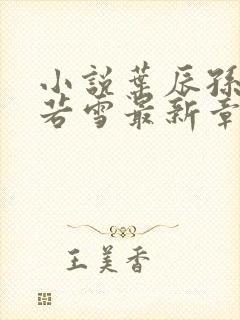 小說葉辰孫
若雪最新章
王美香